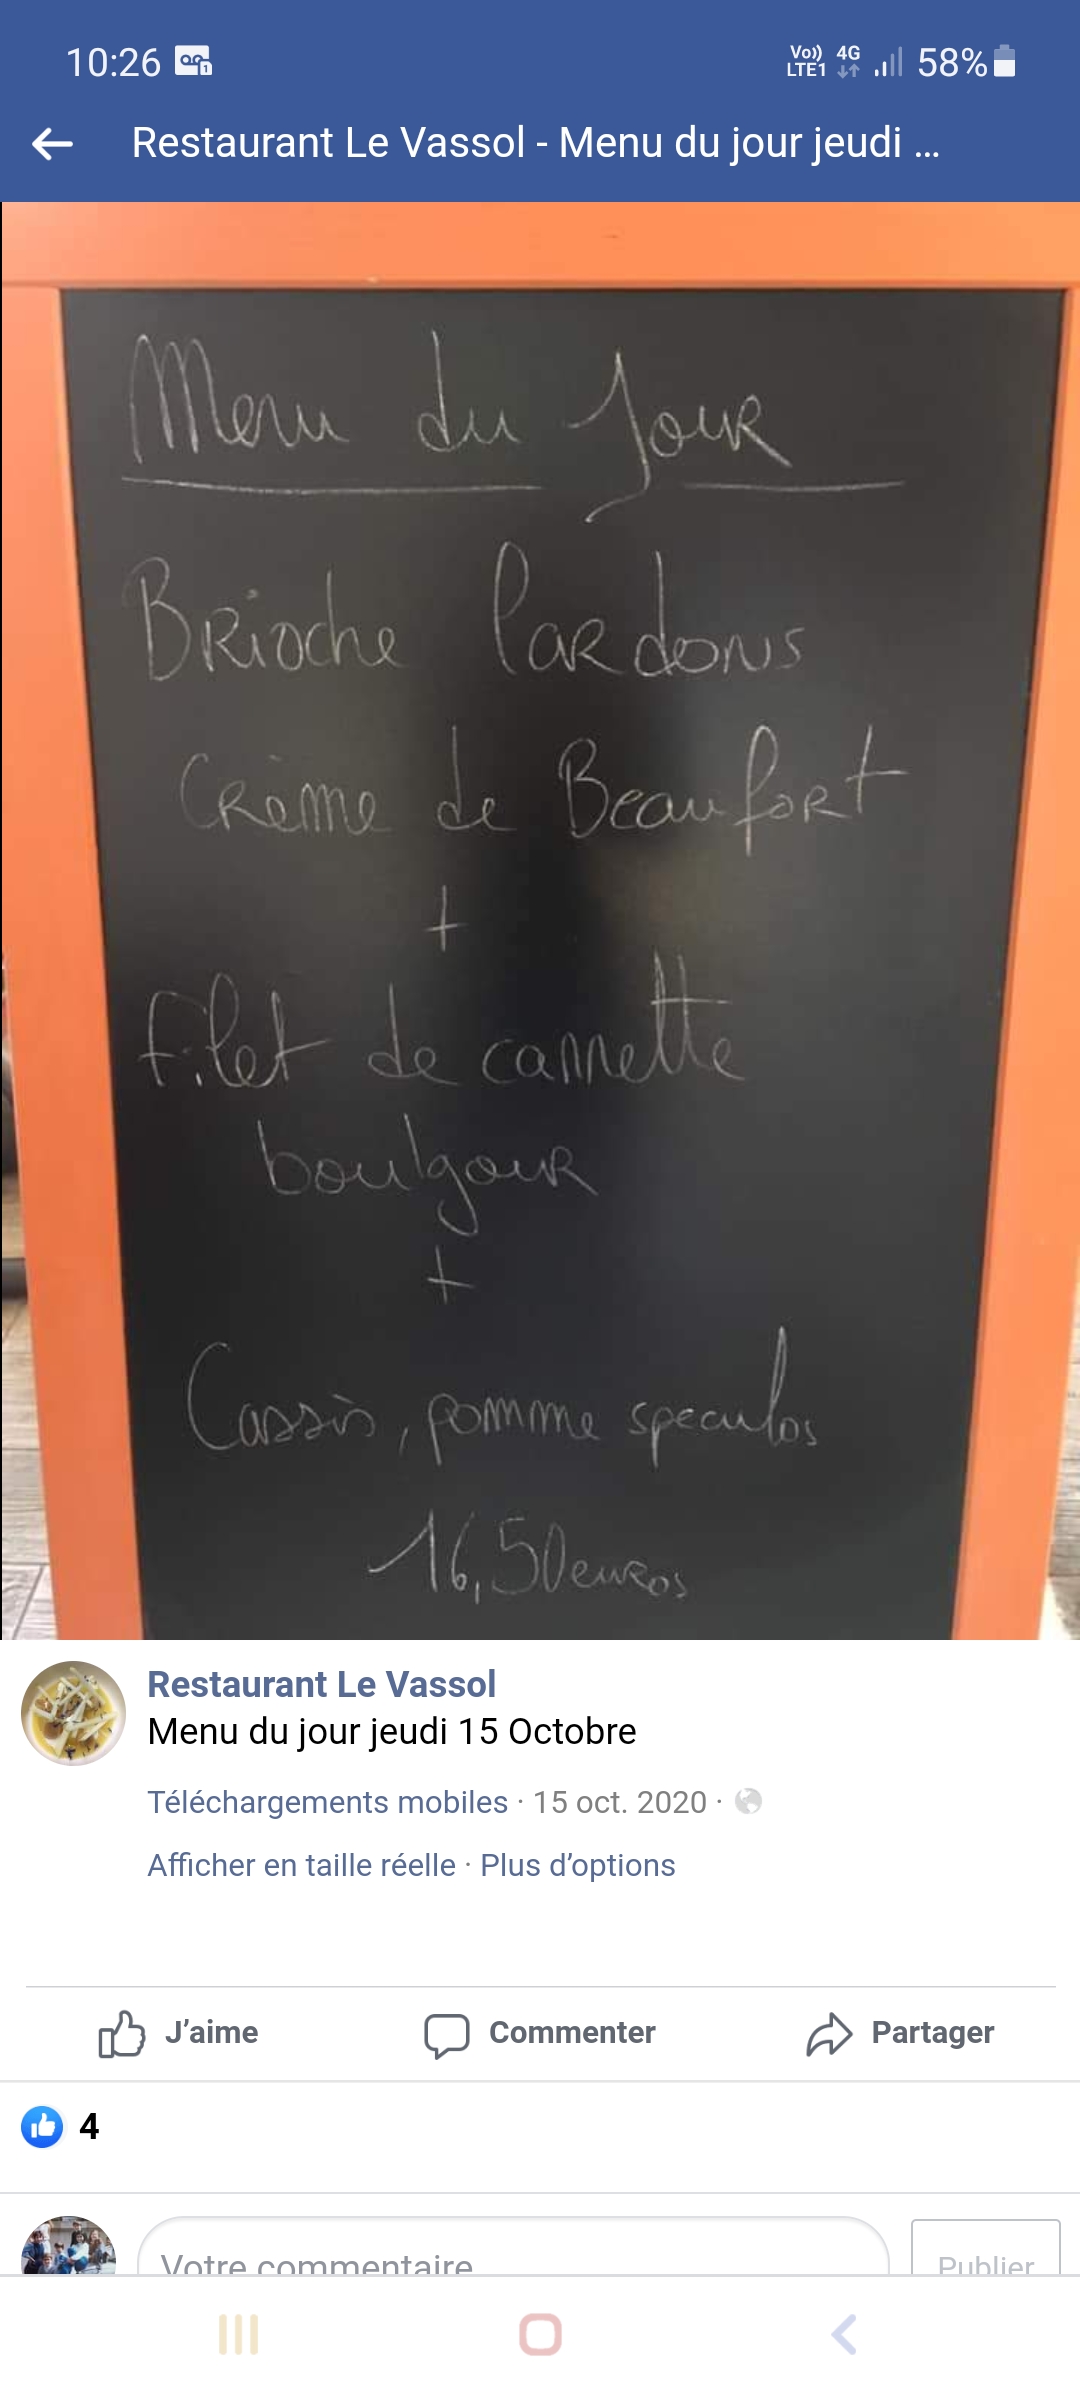 10:26
Vo)) LTE1 4G 58%
Restaurant Le Vassol - Menu du jour jeudi ...
Menu du Jour
Brioche lardons
Crème de Beaufort
+
Filet de cannette
boulgour
+
Cassis, pomme speculos
16,50euros
Restaurant Le Vassol
Menu du jour jeudi 15 Octobre
Téléchargements mobiles · 15 oct. 2020 ·
Afficher en taille réelle · Plus d’options
J’aime Commenter Partager
4
Votre commentaire Publier